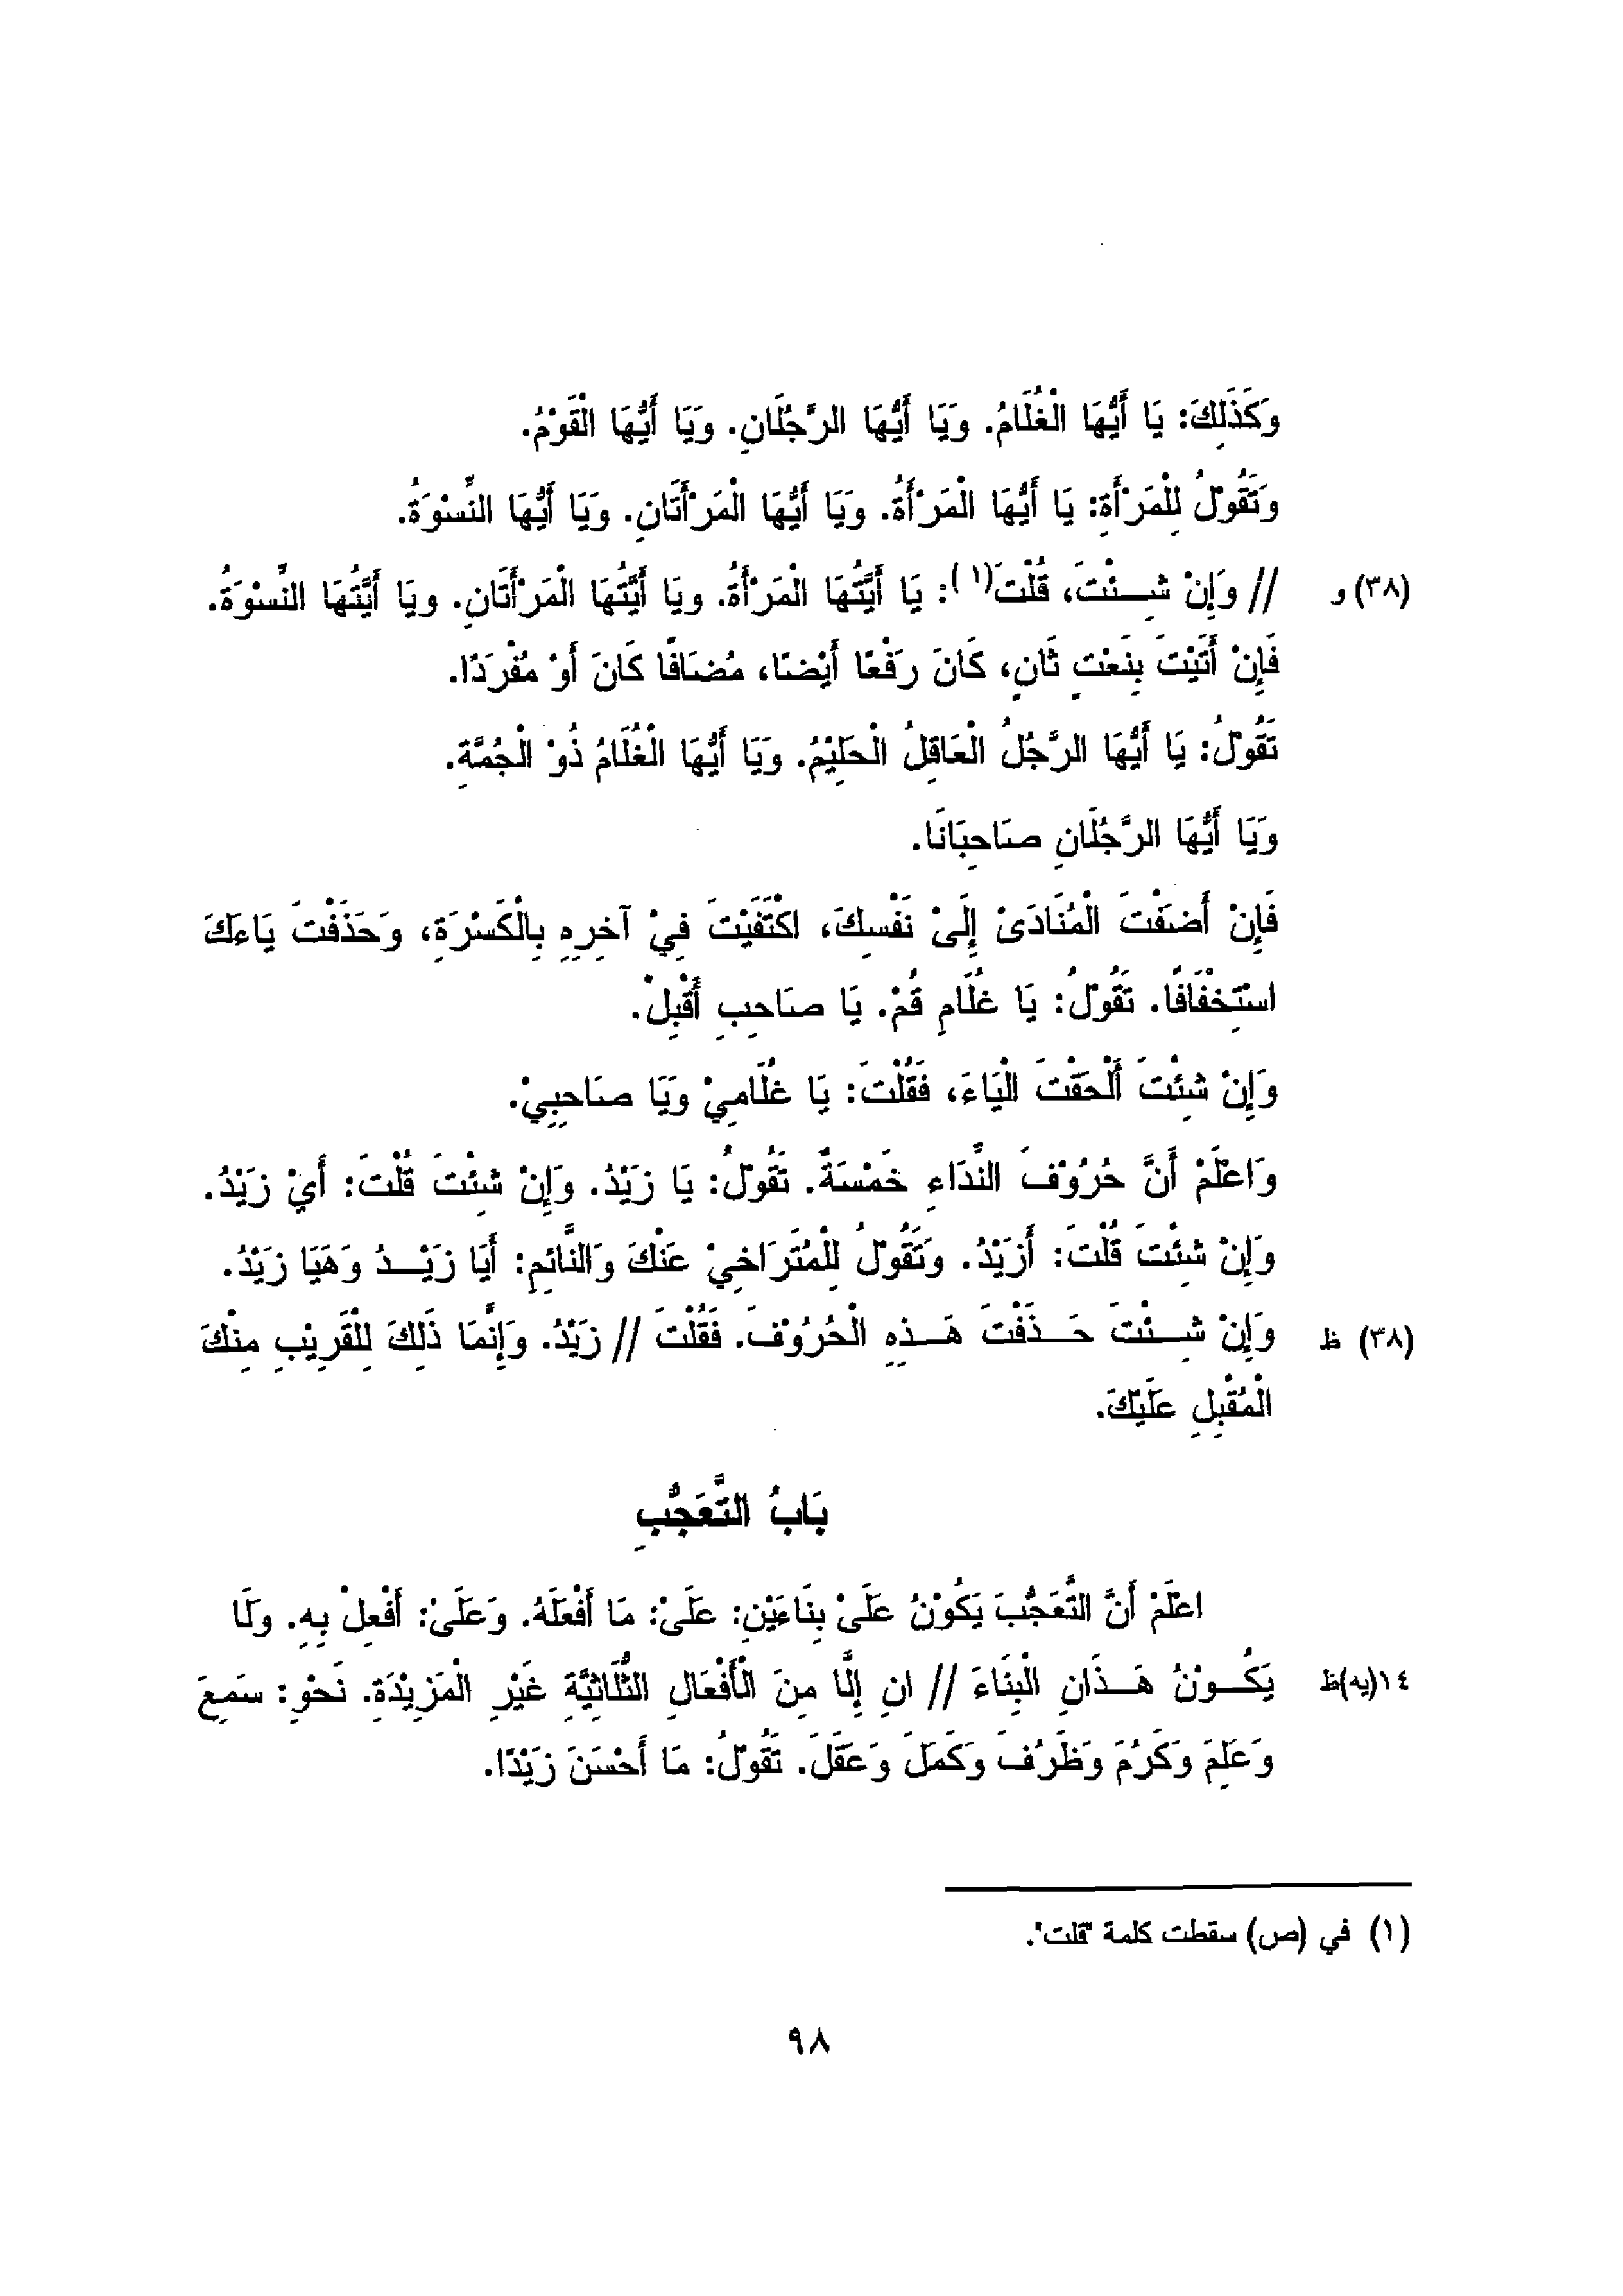 وَكَذَلِكَ: يَا أَيُّهَا الْغُلَامُ. وَيَا أَيُّهَا الرَّجُلَانِ. وَيَا أَيُّهَا الْقَوْمُ.
وَتَقُوْلُ لِلْمَرْأَةِ: يَا أَيُّهَا الْمَرْأَةُ. وَيَا أَيُّهَا الْمَرْأَتَانِ. وَيَا أَيُّهَا النِّسْوَةُ.
(٣٨) و // وَإِنْ شِـئْتَ، قُلْتَ(١): يَا أَيَّتُهَا الْمَرْأَةُ. وَيَا أَيَّتُهَا الْمَرْأَتَانِ. وَيَا أَيَّتُهَا النِّسْوَةُ.
فَإِنْ أَتَيْتَ بِنَعْتٍ ثَانٍ، كَانَ رَفْعًا أَيْضًا، مُضَافًا كَانَ أَوْ مُفْرَدًا.
تَقُوْلُ: يَا أَيُّهَا الرَّجُلُ الْعَاقِلُ الْحَلِيْمُ. وَيَا أَيُّهَا الْغُلَامُ ذُوْ الْجُمَّةِ.
وَيَا أَيُّهَا الرَّجُلَانِ صَاحِبَانَا.
فَإِنْ أَضَفْتَ الْمُنَادَىْ إِلَىْ نَفْسِكَ، اكْتَفَيْتَ فِيْ آخِرِهِ بِالْكَسْرَةِ، وَحَذَفْتَ يَاءَكَ
اسْتِخْفَافًا. تَقُوْلُ: يَا غُلَامِ قُمْ. يَا صَاحِبِ أَقْبِلْ.
وَإِنْ شِئْتَ أَلْحَقْتَ الْيَاءَ، فَقُلْتَ: يَا غُلَامِيْ وَيَا صَاحِبِيْ.
وَاعْلَمْ أَنَّ حُرُوْفَ النِّدَاءِ خَمْسَةٌ. تَقُوْلُ: يَا زَيْدُ. وَإِنْ شِئْتَ قُلْتَ: أَيْ زَيْدُ.
وَإِنْ شِئْتَ قُلْتَ: أَزَيْدُ. وَتَقُوْلُ لِلْمُتَرَاخِيْ عَنْكَ وَالنَّائِمِ: أَيَا زَيْـدُ وَهَيَا زَيْدُ.
(٣٨) ظ وَإِنْ شِـئْتَ حَـذَفْتَ هَـذِهِ الْحُرُوْفَ. فَقُلْتَ // زَيْدُ. وَإِنَّمَا ذَلِكَ لِلْقَرِيْبِ مِنْكَ
الْمُقْبِلِ عَلَيْكَ.
بَابُ التَّعَجُّبِ
اعْلَمْ أَنَّ التَّعَجُّبَ يَكُوْنُ عَلَىْ بِنَاءَيْنِ: عَلَىْ: مَا أَفْعَلَهُ. وَعَلَىْ: أَفْعِلْ بِهِ. وَلَا
١٤(يه)ظ يَكُـوْنُ هَـذَانِ الْبِنَاءَ // انِ إِلَّا مِنَ الْأَفْعَالِ الثُّلَاثِيَّةِ غَيْرِ الْمَزِيْدَةِ. نَحْوِ: سَمِعَ
وَعَلِمَ وَكَرُمَ وَظَرُفَ وَكَمَلَ وَعَقَلَ. تَقُوْلُ: مَا أَحْسَنَ زَيْدًا.
(١) في (ص) سقطت كلمة "قلت".
٩٨